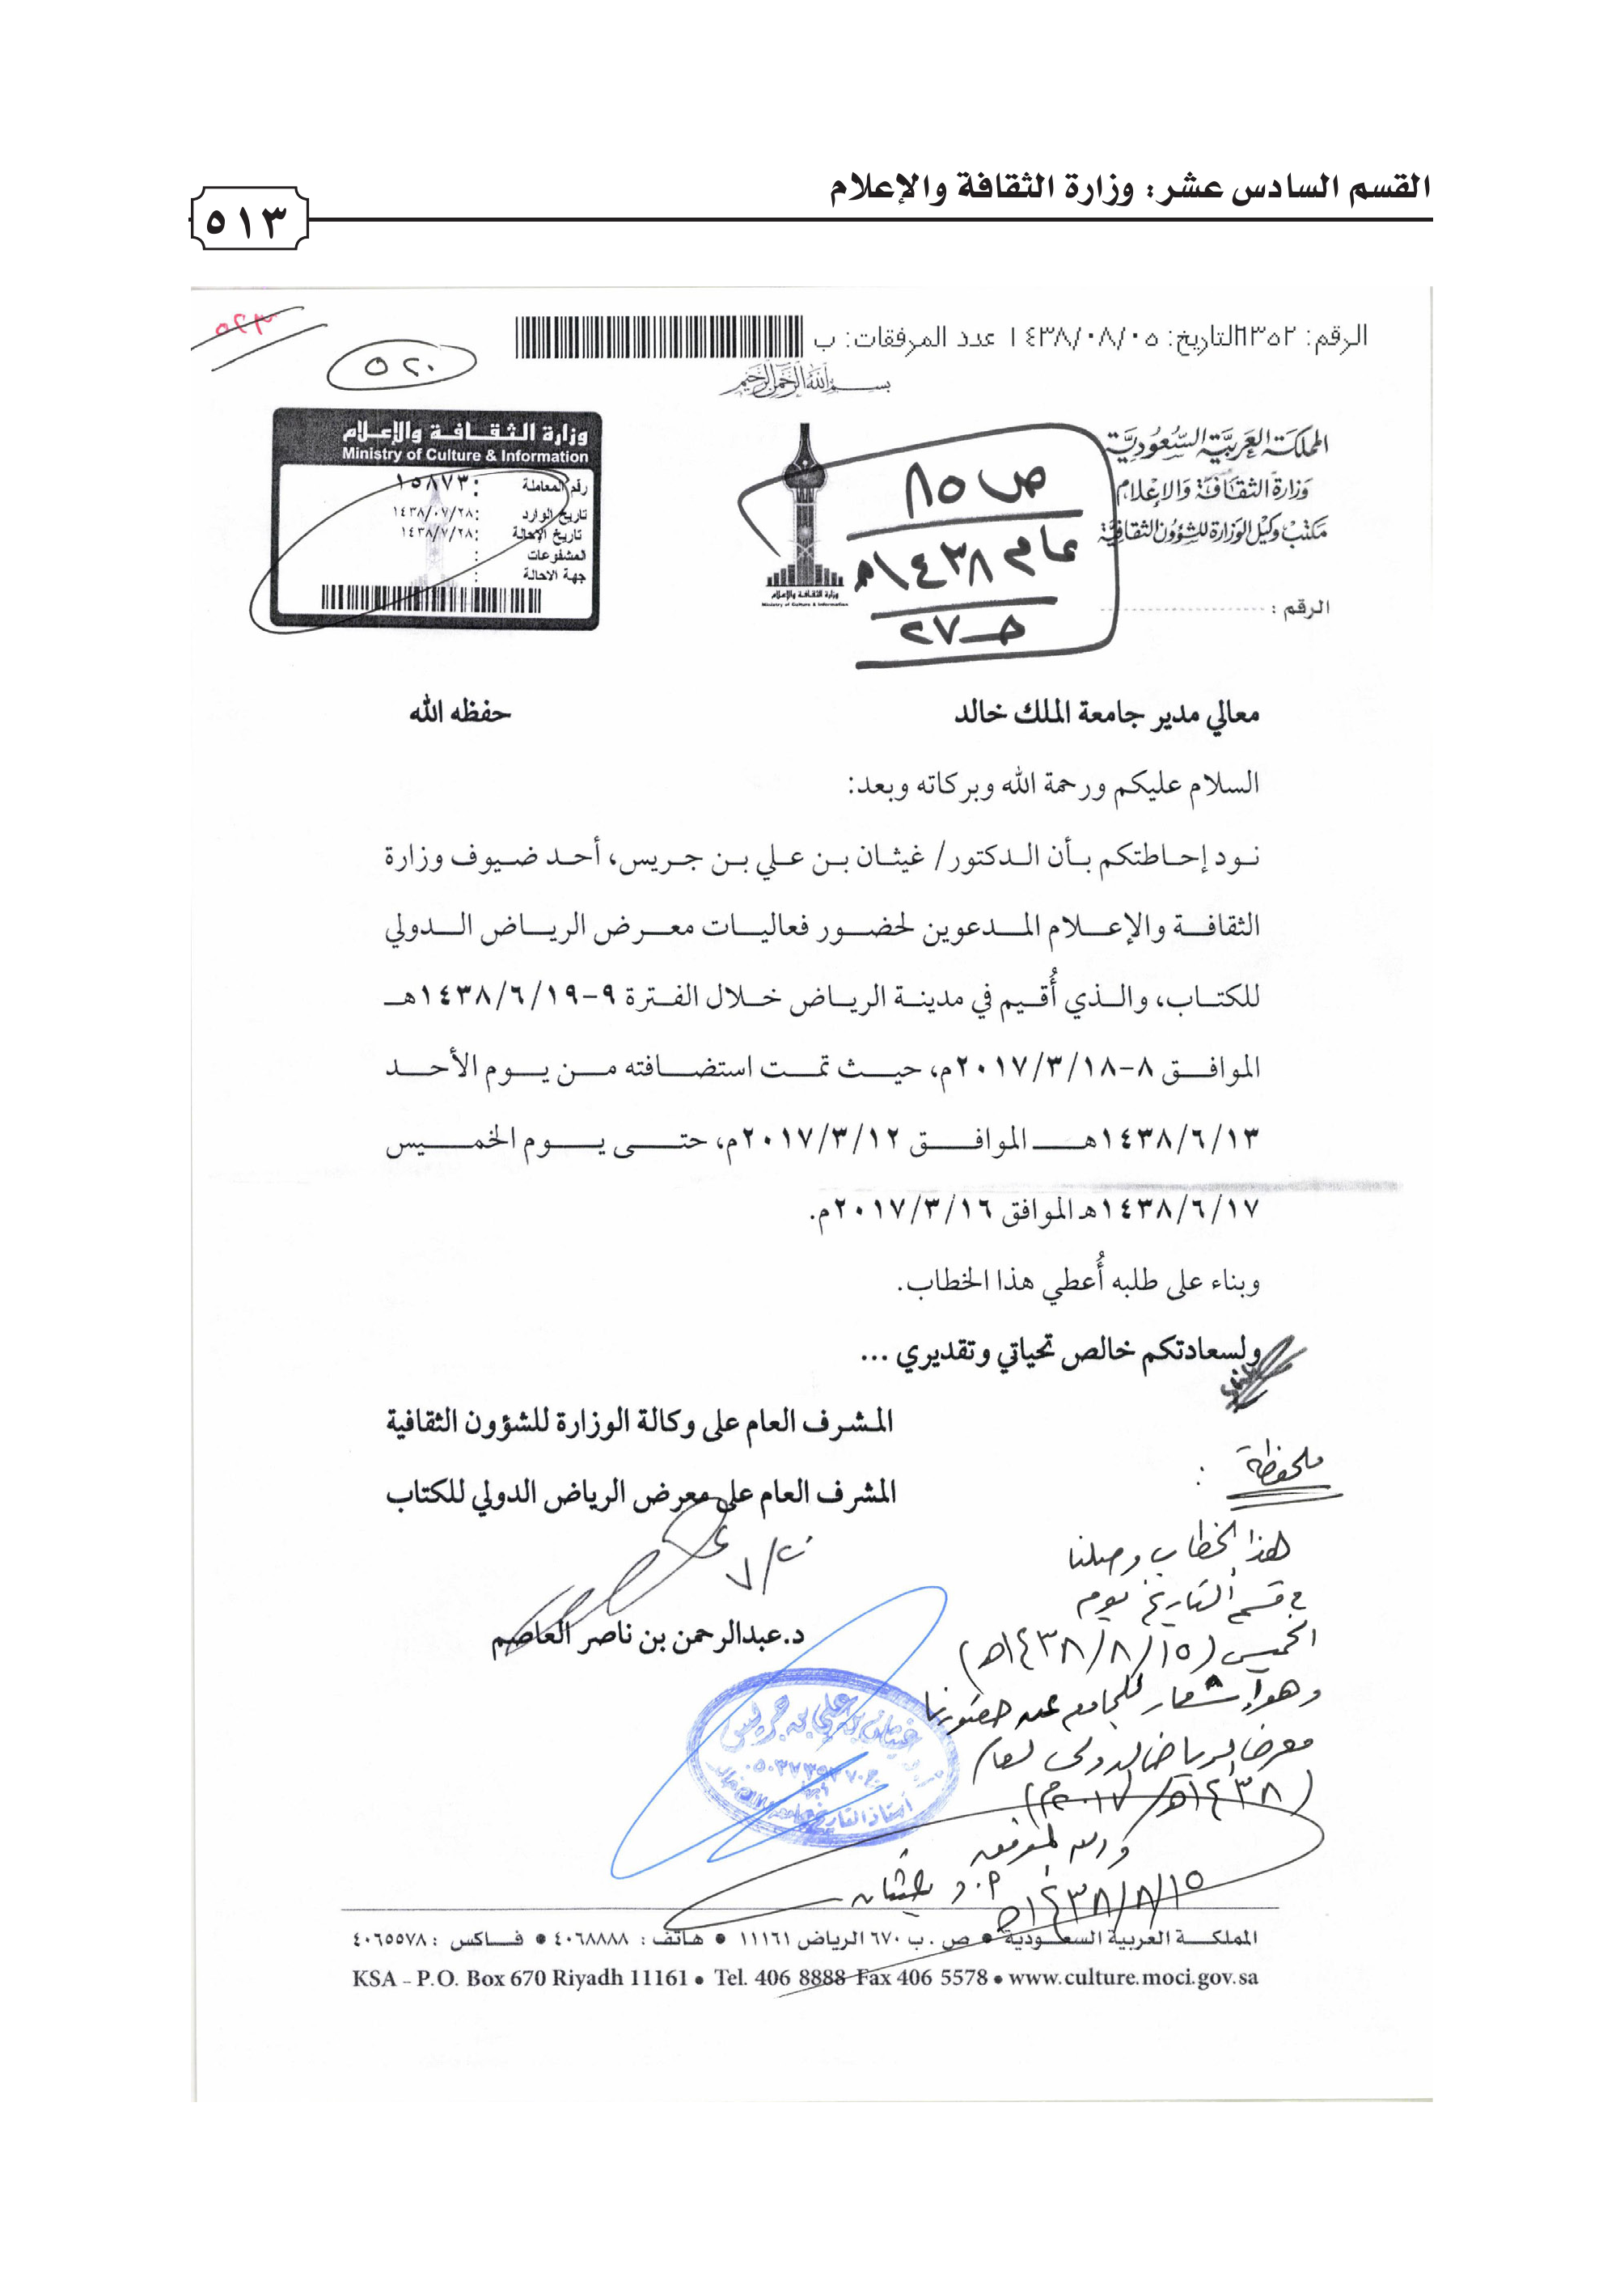 القسم السادس عشر: وزارة الثقافة والإعلام
٥١٣
٥٢٣
الرقم: ٦٣٥٢ التاريخ: ١٤٣٨/٠٨/٠٥ عدد المرفقات: ب
٥٢٠
بسم الله الرحمن الرحيم
المملكة العربية السعودية
وزارة الثقافة والإعلام
مكتب وكيل الوزارة للشؤون الثقافية
الرقم :
ص ٨٥
عام ١٤٣٨هـ
حـ٢٧
وزارة الثقافة والإعلام
Ministry of Culture & Information
وزارة الثقافة والإعلام
Ministry of Culture & Information
رقم المعاملة : ١٥٨٧٣
تاريخ الوارد : ١٤٣٨/٠٧/٢٨
تاريخ الإحالة : ١٤٣٨/٧/٢٨
المشفوعات :
جهة الاحالة :
معالي مدير جامعة الملك خالد حفظه الله
السلام عليكم ورحمة الله وبركاته وبعد:
نود إحاطتكم بأن الدكتور/ غيثان بن علي بن جريس، أحد ضيوف وزارة
الثقافة والإعلام المدعوين لحضور فعاليات معرض الرياض الدولي
للكتاب، والذي أُقيم في مدينة الرياض خلال الفترة ٩-١٤٣٨/٦/١٩هـ
الموافق ٨-٢٠١٧/٣/١٨م، حيث تمت استضافته من يوم الأحد
١٤٣٨/٦/١٣هـ الموافق ٢٠١٧/٣/١٢م، حتى يوم الخميس
١٤٣٨/٦/١٧هـ الموافق ٢٠١٧/٣/١٦م.
وبناء على طلبه أُعطي هذا الخطاب.
ولسعادتكم خالص تحياتي وتقديري ...
المشرف العام على وكالة الوزارة للشؤون الثقافية
المشرف العام على معرض الرياض الدولي للكتاب
د.عبدالرحمن بن ناصر العاصم
ملحوظة :
هذا الخطاب وصلنا
في قسم التاريخ يوم
الخميس (١٤٣٨/٨/١٥هـ)
وهو إشعار للجامعة عند حضورنا
معرض الرياض الدولي لعام
(١٤٣٨هـ/٢٠١٧م)
والله الموفق
أ.د غيثان
١٤٣٨/٨/١٥هـ
غيثان بن علي بن جريس
المملكة العربية السعودية • ص . ب ٦٧٠ الرياض ١١١٦١ • هاتف : ٤٠٦٨٨٨٨ • فاكس : ٤٠٦٥٥٧٨
KSA – P.O. Box 670 Riyadh 11161 • Tel. 406 8888 Fax 406 5578 • www.culture.moci.gov.sa